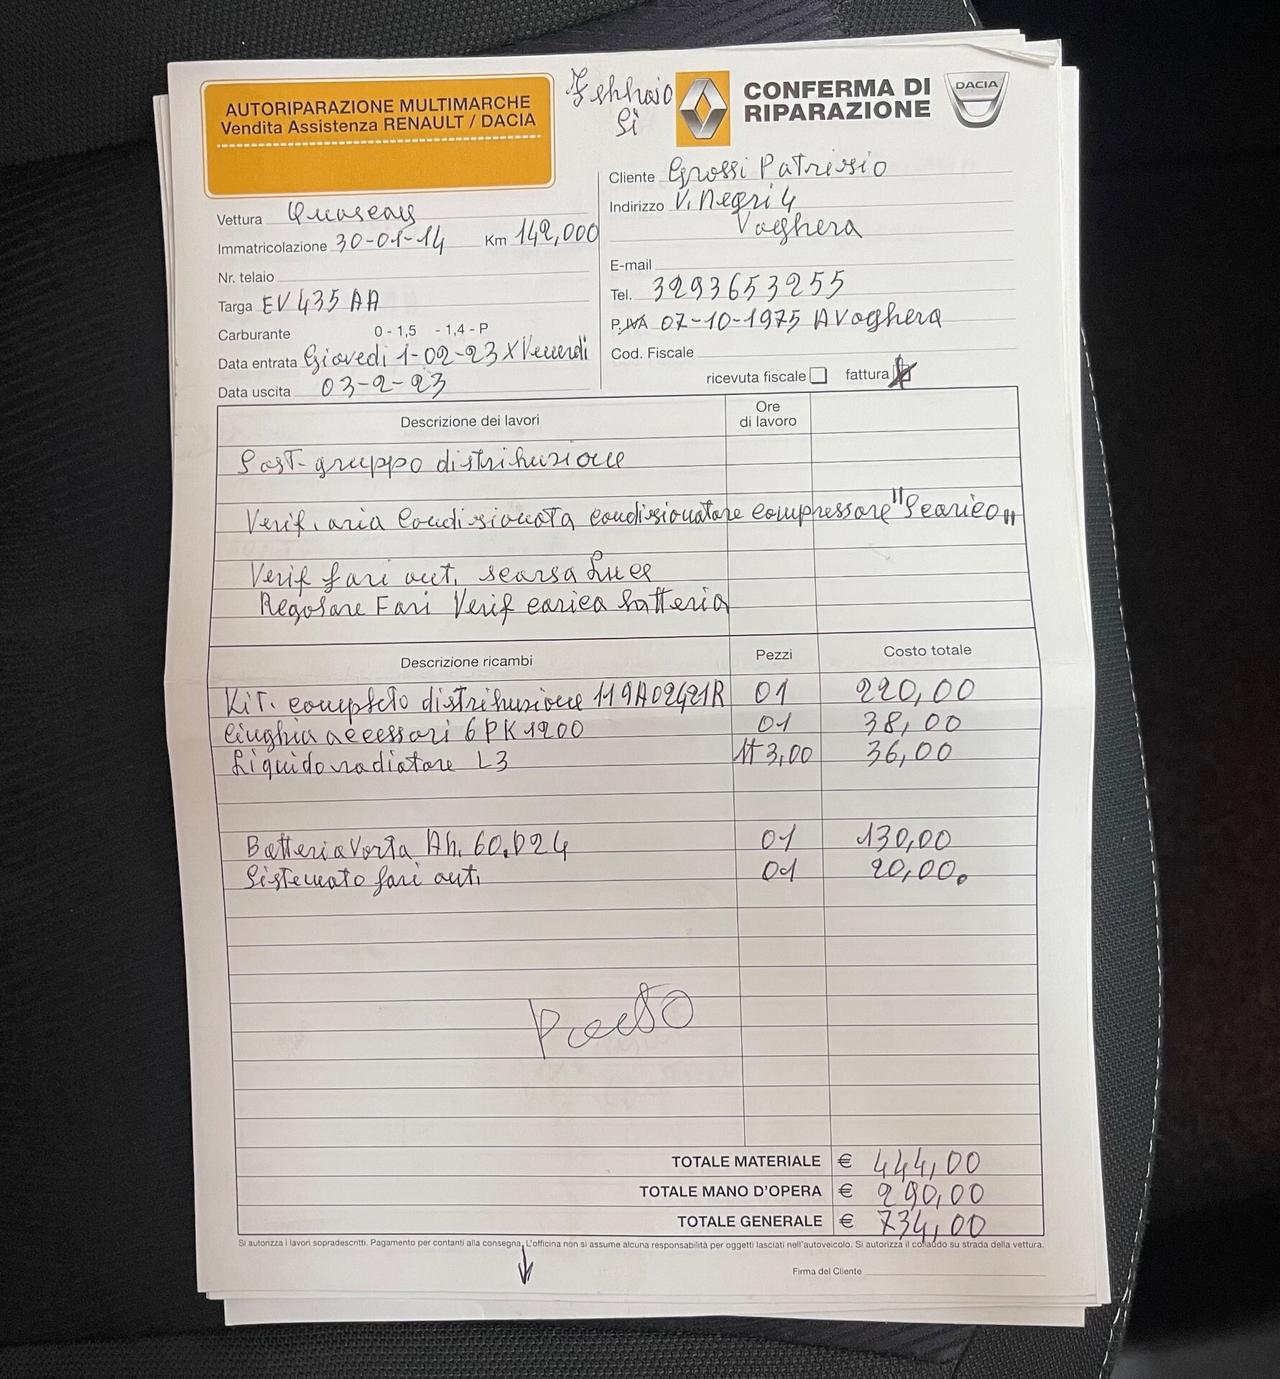 AUTORIPARAZIONE MULTIMARCHE
Vendita Assistenza RENAULT / DACIA
Febbraio
Si
CONFERMA DI
RIPARAZIONE
DACIA
Vettura
Immatricolazione 30-01-14 Km 142,000
Nr. telaio
Targa EV 435 AA
Carburante 0 - 1,5 - 1,4 - P
Data entrata Giovedi 1-02-23 X Venerdi
Data uscita 03-2-23
Cliente Grossi Patrizio
Indirizzo V. Negri 4
Voghera
E-mail
Tel. 3293653255
P. IVA 07-10-1975 A Voghera
Cod. Fiscale
ricevuta fiscale fattura
Descrizione dei lavori Ore di lavoro
Sost. gruppo distribuzione
Verif. aria condizionata condizionatore compressore "Scarico"
Verif fari ant. scarsa luce
Regolare Fari Verif carica batteria
Descrizione ricambi Pezzi Costo totale
Kit. completo distribuzione 119A02421R 01 220,00
Cinghia accessori 6PK1200 01 38,00
Liquido radiatore L3 3,00 36,00
Batteria Varta Ah. 60. D24 01 130,00
Sistemato fari ant. 01 20,00.
TOTALE MATERIALE € 444,00
TOTALE MANO D'OPERA € 290,00
TOTALE GENERALE € 734,00
Si autorizza i lavori sopradescritti. Pagamento per contanti alla consegna. L'officina non si assume alcuna responsabilità per oggetti lasciati nell'autoveicolo. Si autorizza il collaudo su strada della vettura.
Firma del Cliente